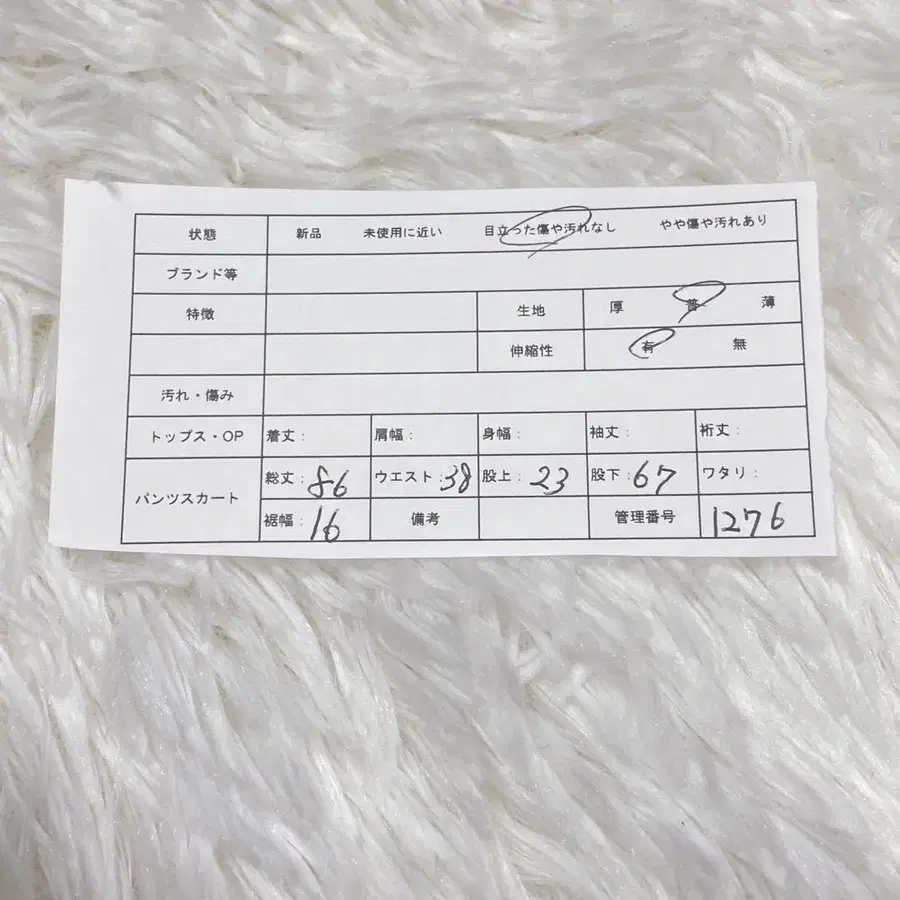 状態 新品 未使用に近い 目立った傷や汚れなし やや傷や汚れあり
ブランド等
特徴 生地 厚 普 薄
伸縮性 有 無
汚れ・傷み
トップス・OP 着丈: 肩幅: 身幅: 袖丈: 裄丈:
パンツスカート 総丈:86 ウエスト:38 股上:23 股下:67 ワタリ:
裾幅:16 備考 管理番号 1276